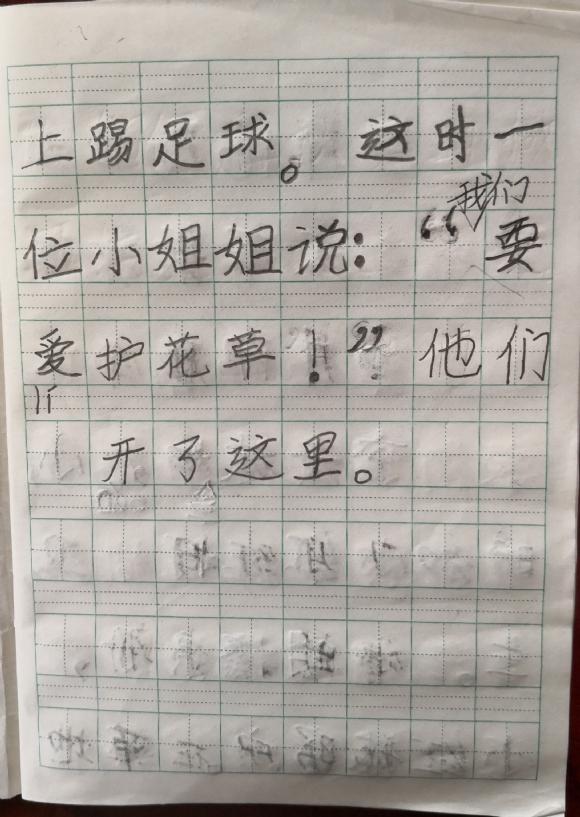 上踢足球。这时一
位小姐姐说：“我们要
爱护花草！”他们
lí
开了这里。